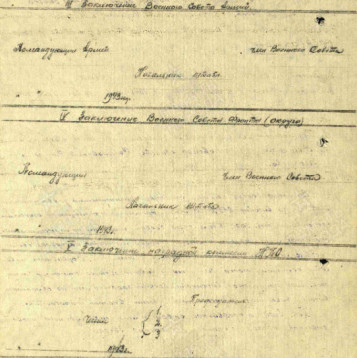 III Заключение Военного Совета Армии.
Командующий Армией член Военного Совета
Начальник штаба
1943г.
IV Заключение Военного Совета Фронта (округа)
Командующий Член Военного Совета
Начальник штаба
1943г.
V Заключение наградной комиссии НКО
Председатель
Члены 1 2 3
1943г.